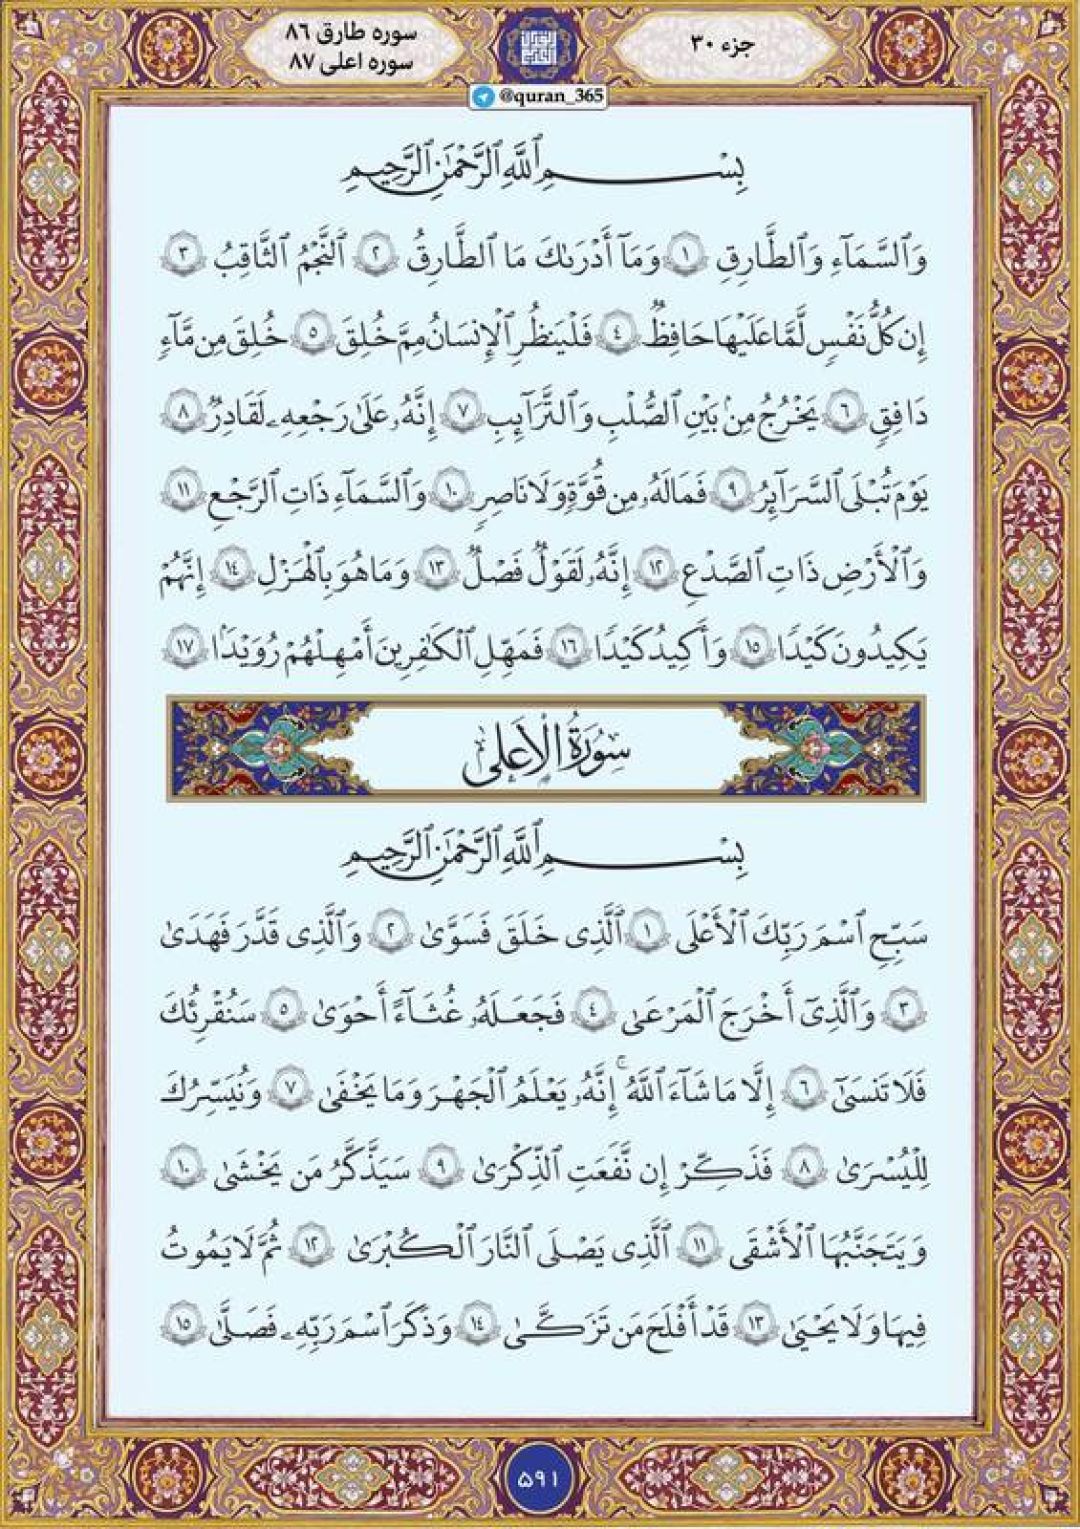 جزء ۳۰
سوره طارق ۸۶
سوره اعلی ۸۷
@quran_365
بِسْمِ ٱللَّهِ ٱلرَّحْمَٰنِ ٱلرَّحِيمِ
وَٱلسَّمَآءِ وَٱلطَّارِقِ ١ وَمَآ أَدْرَىٰكَ مَا ٱلطَّارِقُ ٢ ٱلنَّجْمُ ٱلثَّاقِبُ ٣
إِن كُلُّ نَفْسٍ لَّمَّا عَلَيْهَا حَافِظٌ ٤ فَلْيَنظُرِ ٱلْإِنسَانُ مِمَّ خُلِقَ ٥ خُلِقَ مِن مَّآءٍ
دَافِقٍ ٦ يَخْرُجُ مِنۢ بَيْنِ ٱلصُّلْبِ وَٱلتَّرَآئِبِ ٧ إِنَّهُۥ عَلَىٰ رَجْعِهِۦ لَقَادِرٌ ٨
يَوْمَ تُبْلَى ٱلسَّرَآئِرُ ٩ فَمَا لَهُۥ مِن قُوَّةٍ وَلَا نَاصِرٍ ١٠ وَٱلسَّمَآءِ ذَاتِ ٱلرَّجْعِ ١١
وَٱلْأَرْضِ ذَاتِ ٱلصَّدْعِ ١٢ إِنَّهُۥ لَقَوْلٌ فَصْلٌ ١٣ وَمَا هُوَ بِٱلْهَزْلِ ١٤ إِنَّهُمْ
يَكِيدُونَ كَيْدًا ١٥ وَأَكِيدُ كَيْدًا ١٦ فَمَهِّلِ ٱلْكَٰفِرِينَ أَمْهِلْهُمْ رُوَيْدًۢا ١٧
سُورَةُ الْأَعْلَىٰ
بِسْمِ ٱللَّهِ ٱلرَّحْمَٰنِ ٱلرَّحِيمِ
سَبِّحِ ٱسْمَ رَبِّكَ ٱلْأَعْلَى ١ ٱلَّذِى خَلَقَ فَسَوَّىٰ ٢ وَٱلَّذِى قَدَّرَ فَهَدَىٰ
٣ وَٱلَّذِىٓ أَخْرَجَ ٱلْمَرْعَىٰ ٤ فَجَعَلَهُۥ غُثَآءً أَحْوَىٰ ٥ سَنُقْرِئُكَ
فَلَا تَنسَىٰٓ ٦ إِلَّا مَا شَآءَ ٱللَّهُ ۚ إِنَّهُۥ يَعْلَمُ ٱلْجَهْرَ وَمَا يَخْفَىٰ ٧ وَنُيَسِّرُكَ
لِلْيُسْرَىٰ ٨ فَذَكِّرْ إِن نَّفَعَتِ ٱلذِّكْرَىٰ ٩ سَيَذَّكَّرُ مَن يَخْشَىٰ ١٠
وَيَتَجَنَّبُهَا ٱلْأَشْقَى ١١ ٱلَّذِى يَصْلَى ٱلنَّارَ ٱلْكُبْرَىٰ ١٢ ثُمَّ لَا يَمُوتُ
فِيهَا وَلَا يَحْيَىٰ ١٣ قَدْ أَفْلَحَ مَن تَزَكَّىٰ ١٤ وَذَكَرَ ٱسْمَ رَبِّهِۦ فَصَلَّىٰ ١٥
۵۹۱